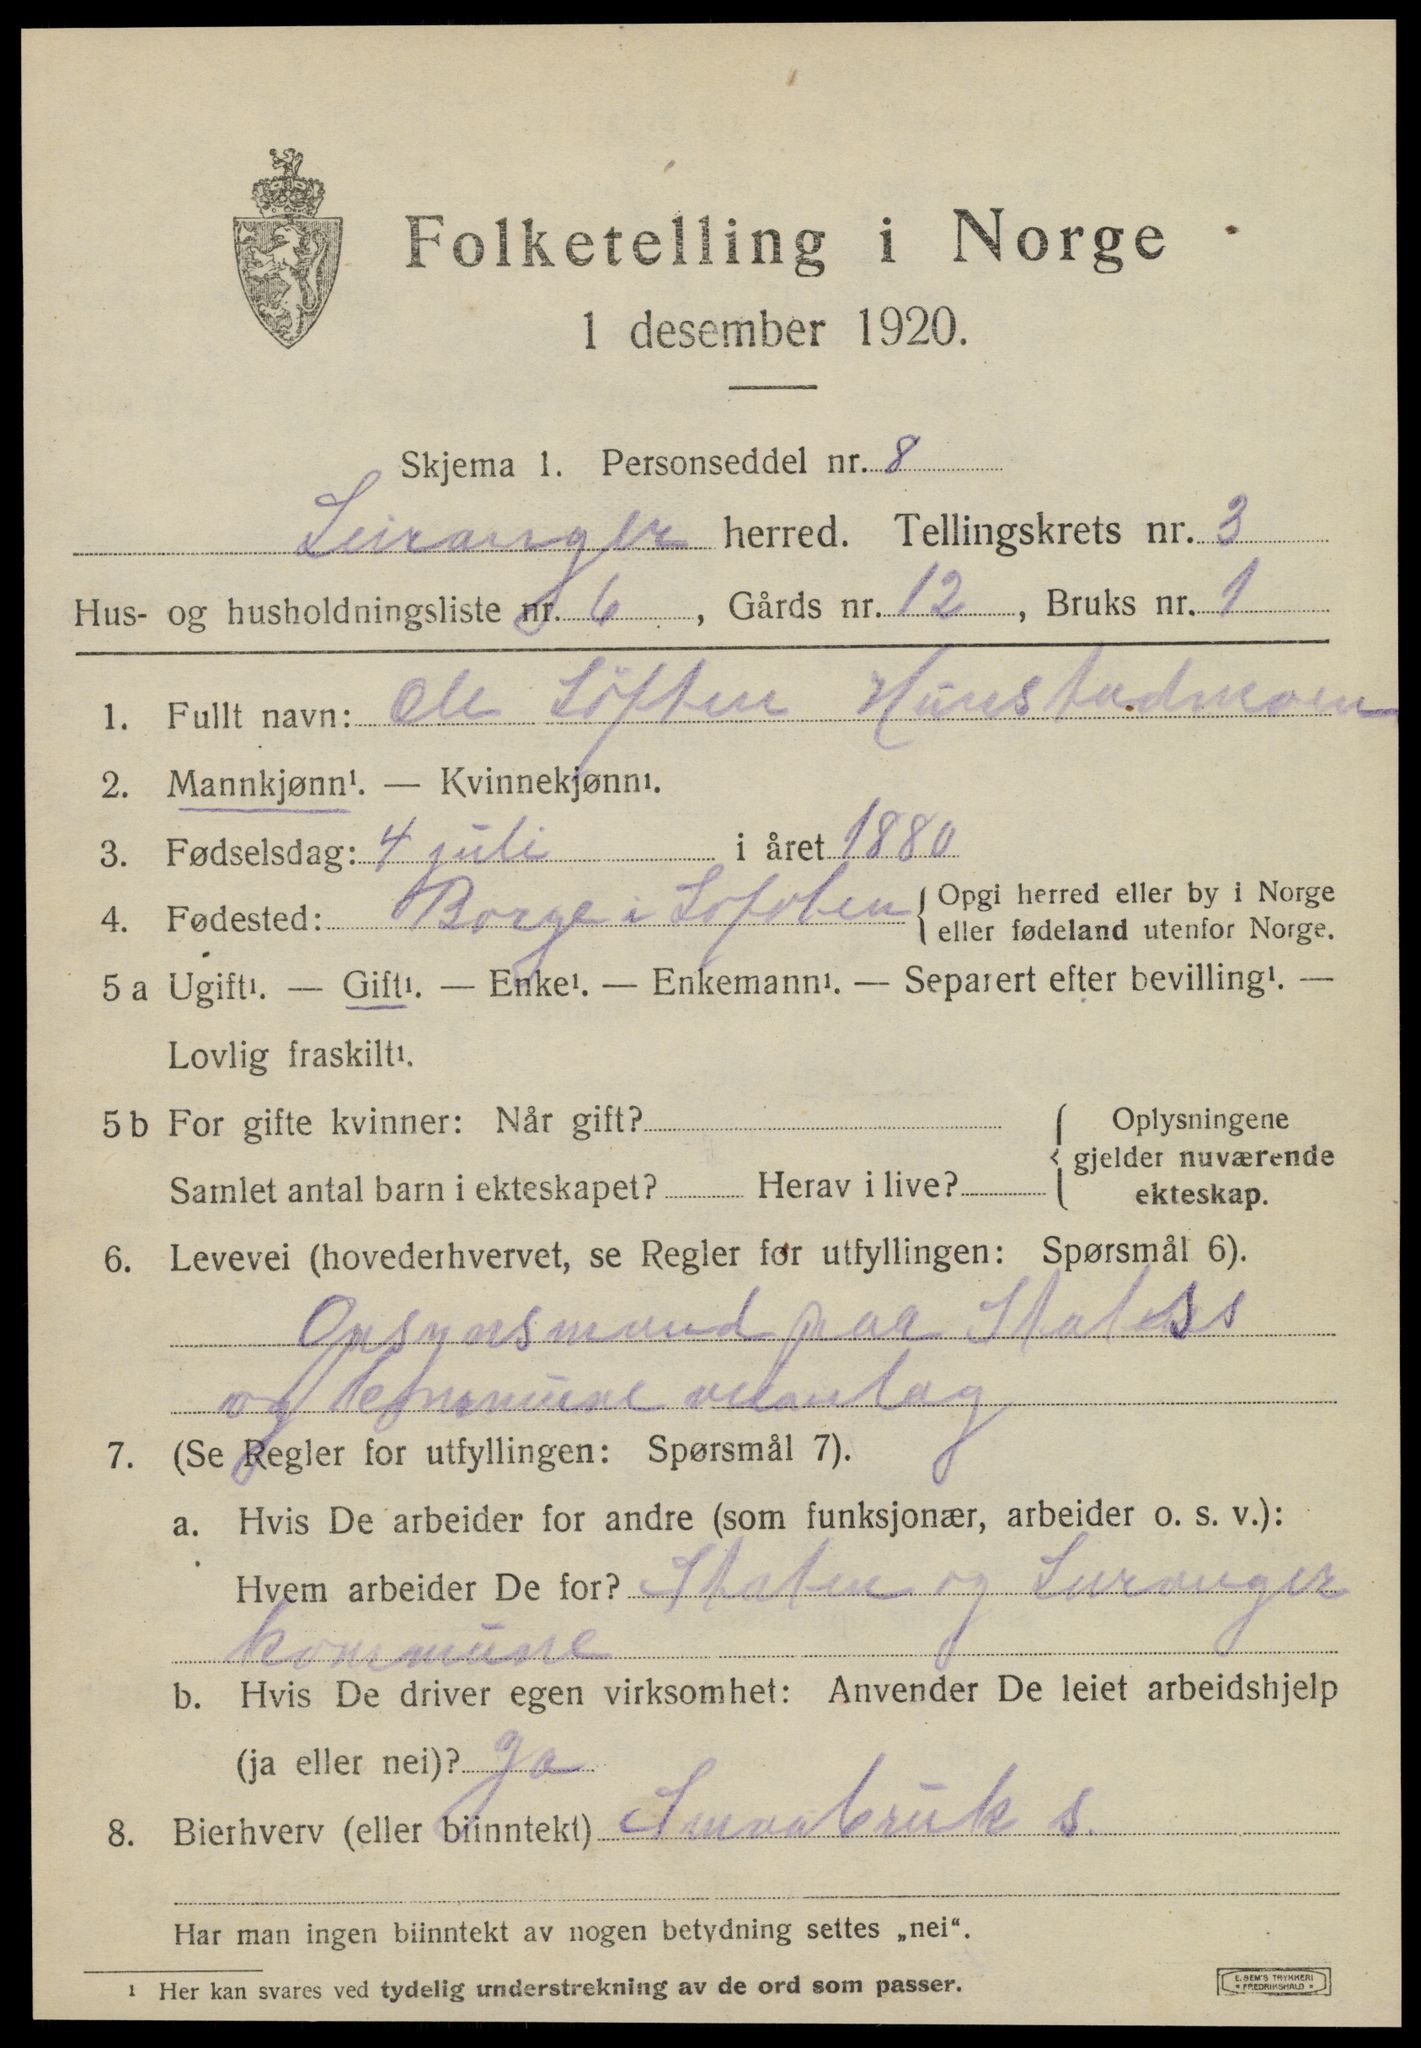 Folketelling i Norge
1 desember 1920.
Skjema 1. Personseddel nr. 8
Leiranger herred. Tellingskrets nr. 3
Hus- og husholdningsliste nr. 6, Gårds nr. 12, Bruks nr. 1
1. Fullt navn: Ole Löften Hunstadmoen
2. Mannkjønn¹. — Kvinnekjønn¹.
3. Fødselsdag: 4 juli i året 1880
4. Fødested: Borge i Lofoten { Opgi herred eller by i Norge
eller fødeland utenfor Norge.
5 a Ugift¹. — Gift¹. — Enke¹. — Enkemann¹. — Separert efter bevilling¹. —
Lovlig fraskilt¹.
5 b For gifte kvinner: Når gift?
Samlet antal barn i ekteskapet? Herav i live?
{ Oplysningene
gjelder nuværende
ekteskap.
6. Levevei (hovederhvervet, se Regler for utfyllingen: Spørsmål 6).
Opsynsmand paa Statss
og kommune
7. (Se Regler for utfyllingen: Spørsmål 7).
a. Hvis De arbeider for andre (som funksjonær, arbeider o. s. v.):
Hvem arbeider De for? Staten og Leiranger
kommune
b. Hvis De driver egen virksomhet: Anvender De leiet arbeidshjelp
(ja eller nei)? Ja
8. Bierhverv (eller biinntekt) Smaabruk s.
Har man ingen biinntekt av nogen betydning settes „nei“.
¹ Her kan svares ved tydelig understrekning av de ord som passer.
E. SEM'S TRYKKERI
FREDRIKSHALD